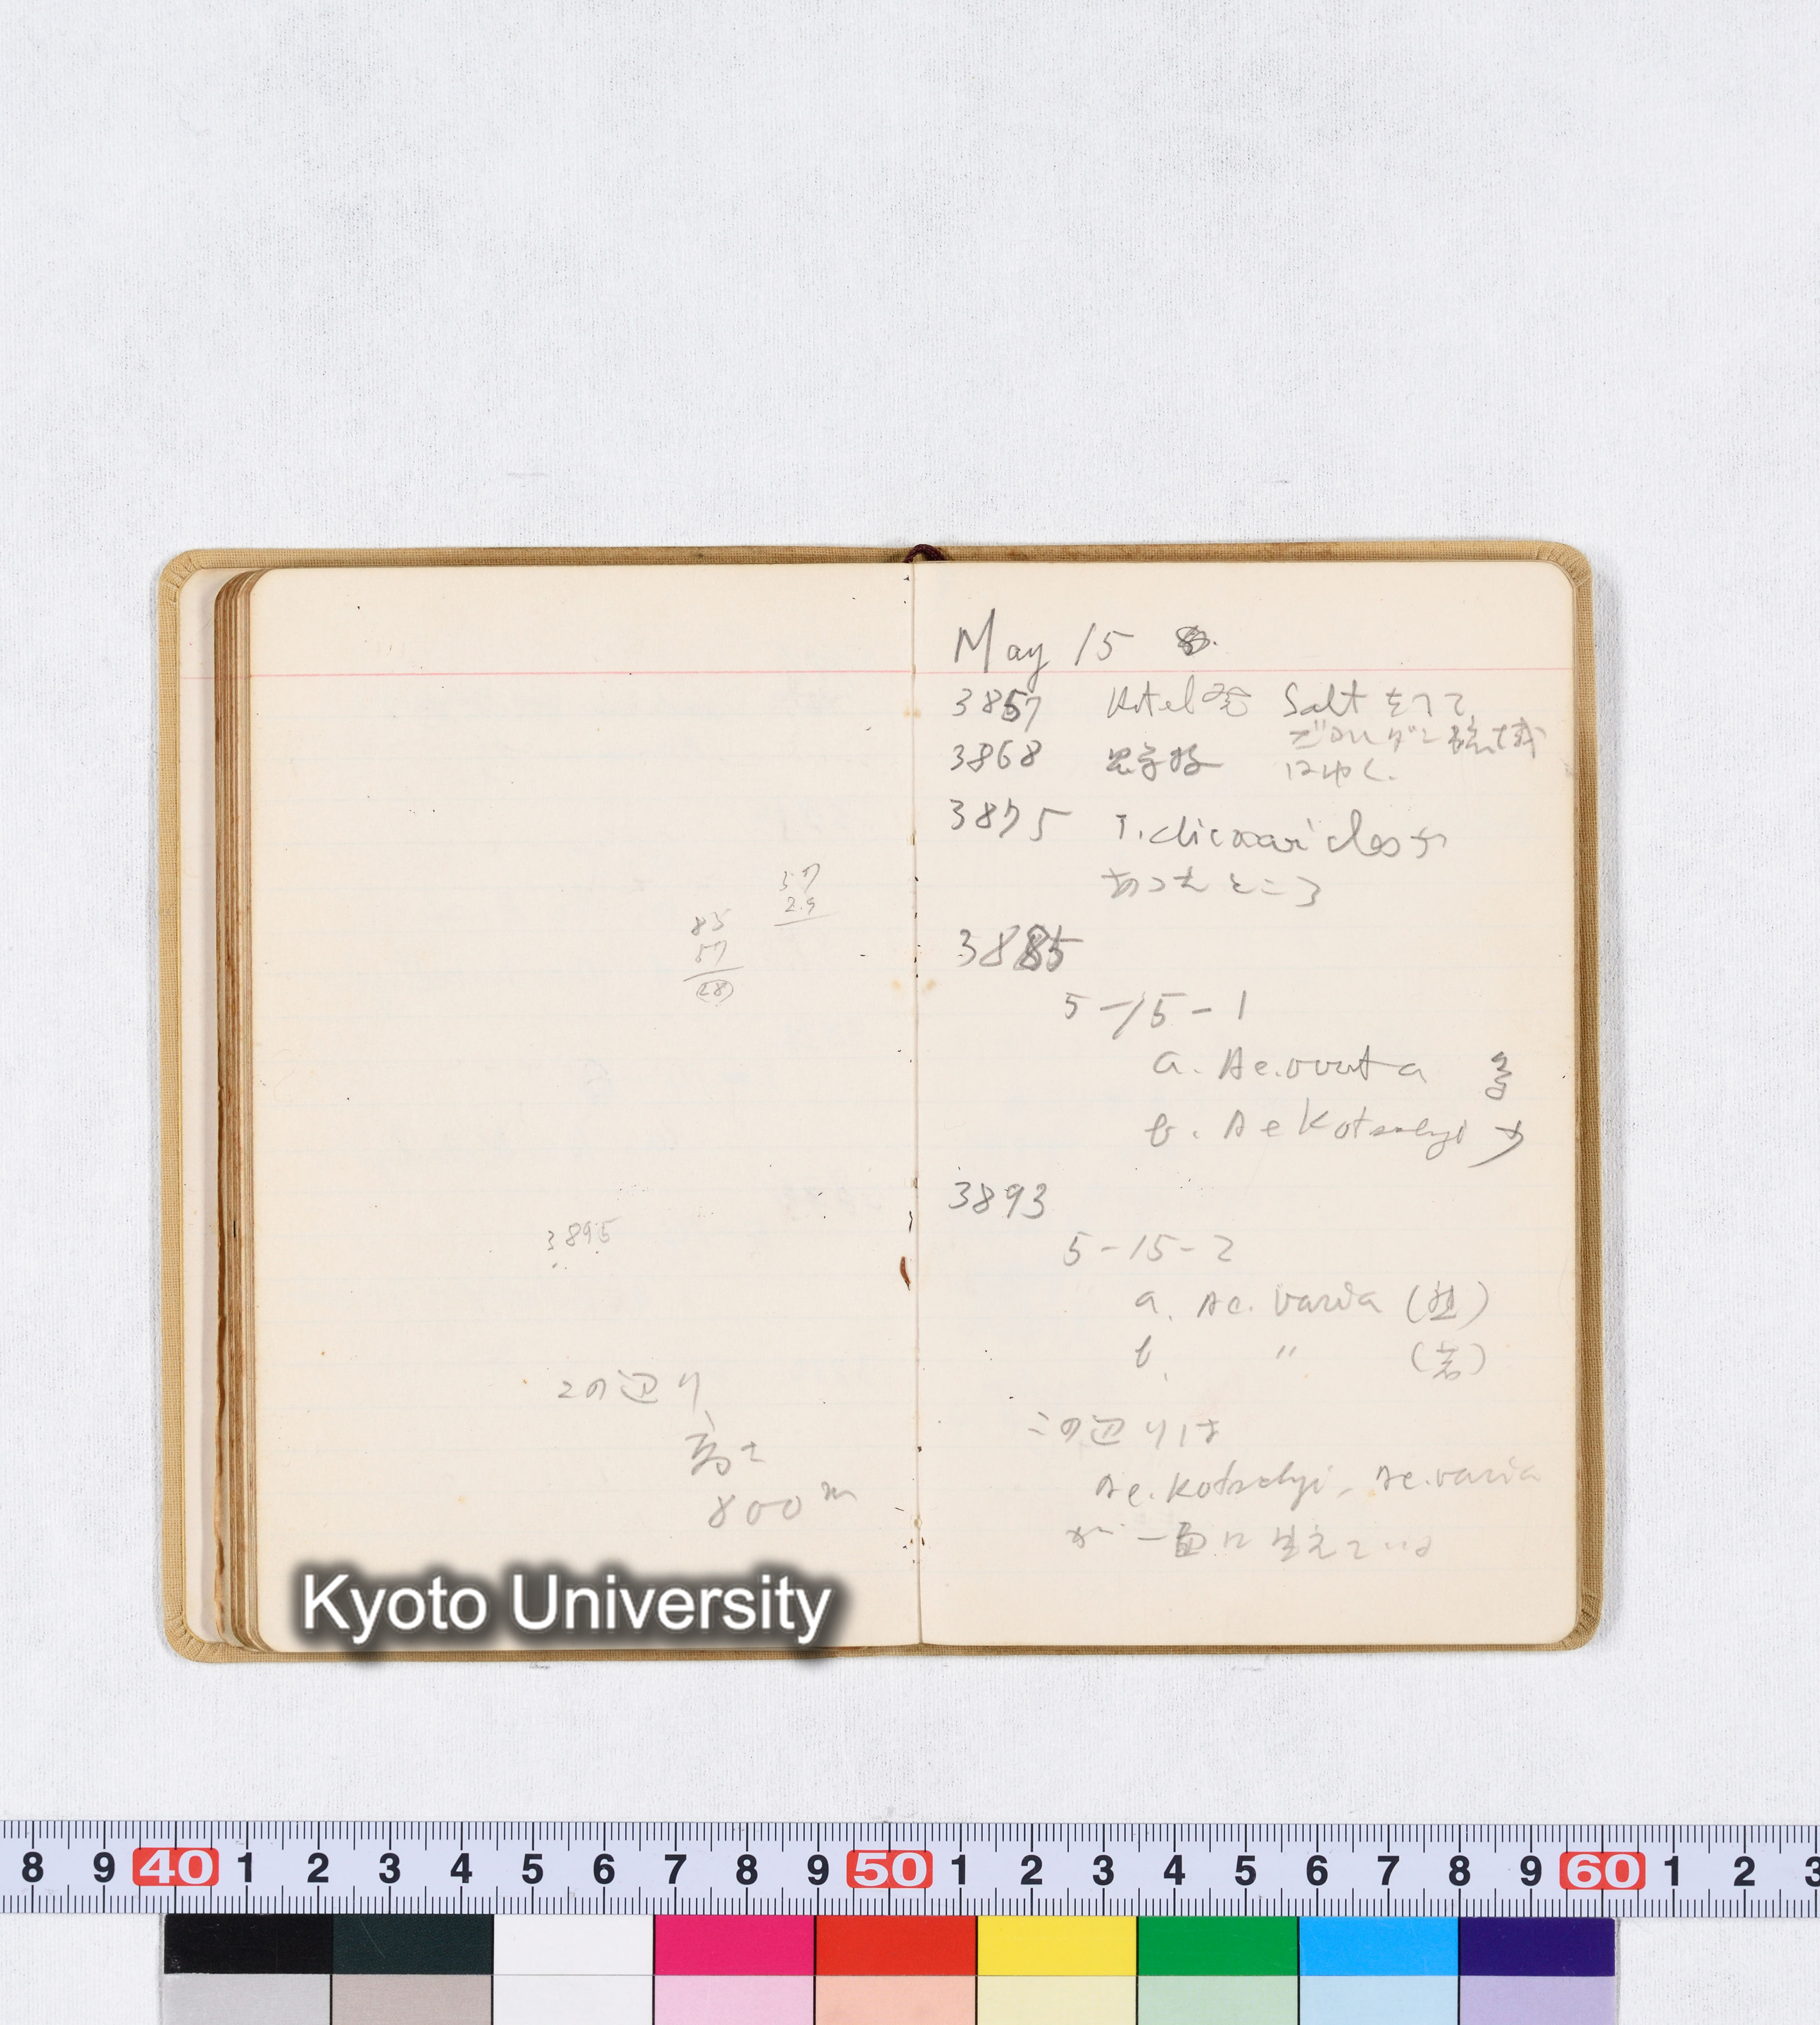 37
2.9
85
57
(28)
3895
この辺り
高さ
800 m
May 15
3857 Hotel発 Saltをへて
3868 にゆく.
3875 T. dicoccoidesが
あったところ
3885
5-15-1
a. Ae. ovata 多
b. Ae Kotschyi 少
3893
5-15-2
a. Ae. varia (黒)
b. " (若)
この辺りは
Ae. Kotschyi, Ae. varia
が一面に生えている
Kyoto University
8 9 40 1 2 3 4 5 6 7 8 9 50 1 2 3 4 5 6 7 8 9 60 1 2 3